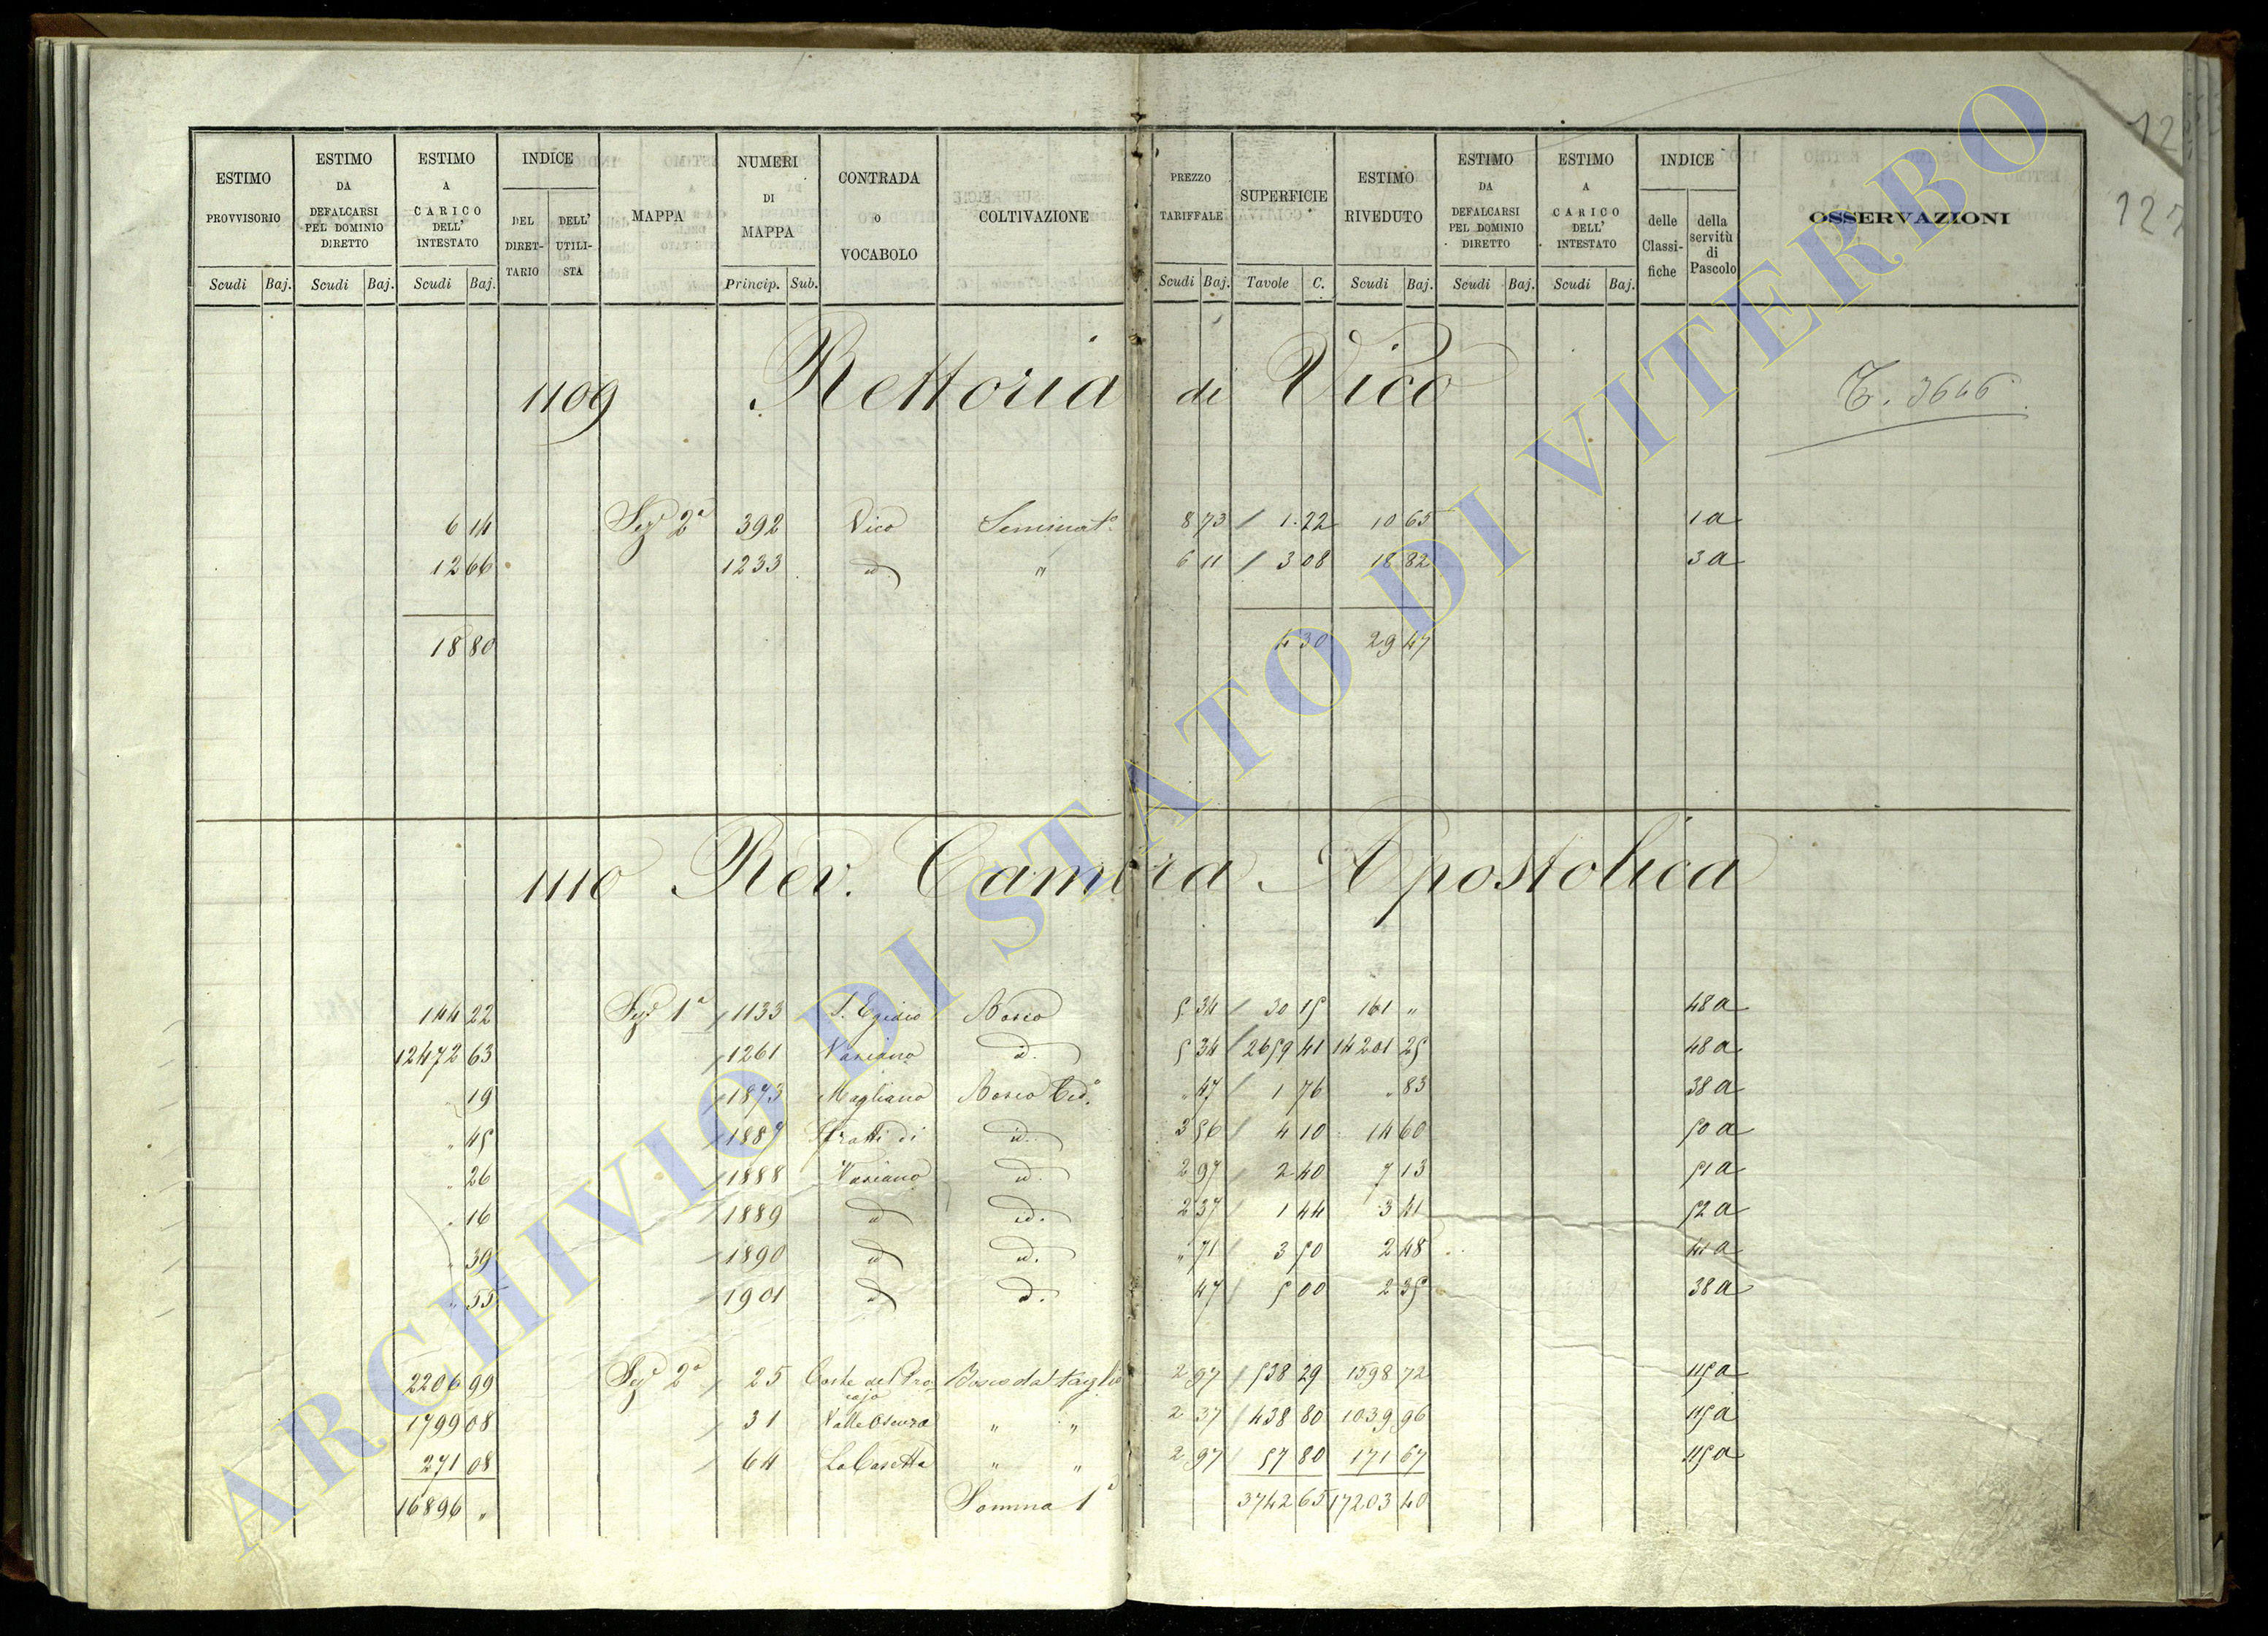 ESTIMO PROVVISORIO Scudi Baj. ESTIMO DA DEFALCARSI PEL DOMINIO DIRETTO Scudi Baj. ESTIMO A CARICO DELL' INTESTATO Scudi Baj. INDICE DEL DIRET-TARIO DELL' UTILI-STA MAPPA NUMERI DI MAPPA Princip. Sub. CONTRADA O VOCABOLO COLTIVAZIONE PREZZO TARIFFALE Scudi Baj. SUPERFICIE Tavole C. ESTIMO RIVEDUTO Scudi Baj. ESTIMO DA DEFALCARSI PEL DOMINIO DIRETTO Scudi Baj. ESTIMO A CARICO DELL' INTESTATO Scudi Baj. INDICE delle Classi-fiche della servitù di Pascolo OSSERVAZIONI
12
127
1109 Rettoria di Vico T. 3646
6 14 Sez.e 2a 392 Vico Seminat.o 8 73 / 1.22 10 65 1a
12 66 1233 id. " 6 11 / 3 08 18 82 3a
18 80 4 30 29 47
1110 Rev. Camera Apostolica
144 22 Sez.e 1a / 1133 S. Egidio Bosco 5 34 / 30 15 161 " 48a
12472 63 / 1261 Vasiano id. 5 34 / 2659 41 14201 25 48a
" 19 / 1873 Magliano Bosco Ced.o " 47 / 1 76 " 83 38a
" 45 / 1887 Sfratti di id. 3 56 / 4 10 14 60 50a
" 26 / 1888 Vasiano id. 2 97 / 2 40 7 13 51a
" 16 / 1889 id id. 2 37 / 1 44 3 41 52a
" 39 / 1890 id id. " 71 / 3 50 2 48 41a
" 55 / 1901 id id. 47 / 5 00 2 35 38a
2206 99 Sez.e 2a / 25 Coste del Procojo Bosco da taglio 2 97 / 538 29 1598 72 115a
1799 08 / 31 Valle Oscura " " 2 37 / 438 80 1039 96 115a
271 08 / 64 La Casetta " " 2 97 / 57 80 171 67 115a
16896 " Somma 1a 3742 65 17203 40
ARCHIVIO DI STATO DI VITERBO